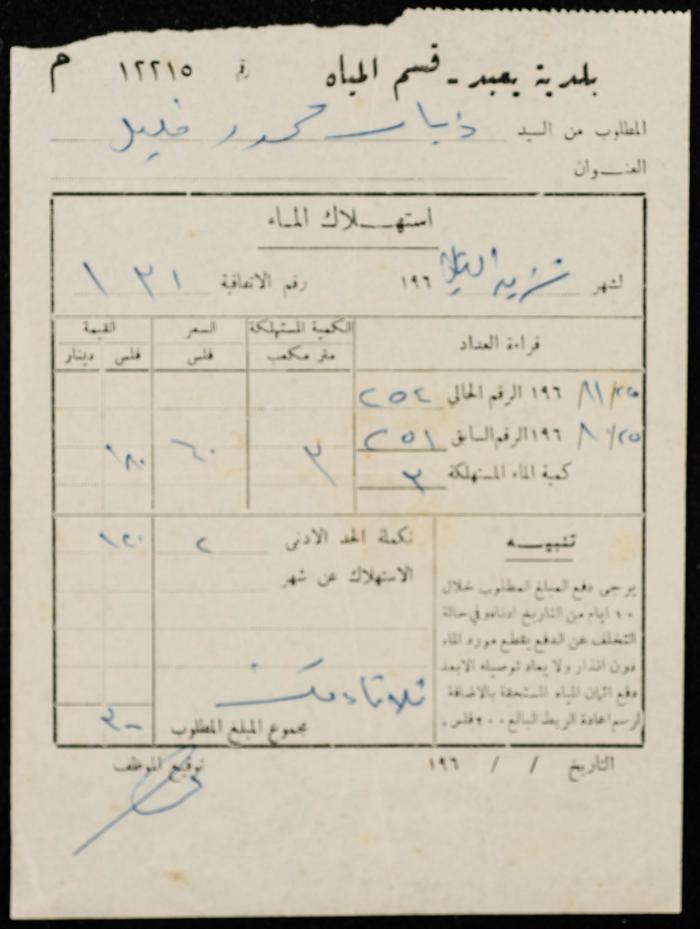 بلدية يعبد - قسم المياه رقم ١٢٢١٥ م
المطلوب من السيد ذياب محمود خليل
العنوان
استهلاك الماء
لشهر تشرين الثاني ١٩٦ رقم الاتفاقية ١٣١
قراءة العداد الكمية المستهلكة السعر القيمة
متر مكعب فلس فلس دينار
١١/٢٥ ١٩٦ الرقم الحالي ٢٥٤
١٠/٢٥ ١٩٦ الرقم السابق ٢٥١
٣ ٦٠ ١٨٠
كمية الماء المستهلكة ٣
تنبيه
يرجى دفع المبلغ المطلوب خلال
١٠ ايام من التاريخ ادناه وفي حالة
التخلف عن الدفع يقطع مورد الماء
دون انذار ولا يعاد توصيله الا بعد
دفع اثمان المياه المستحقة بالاضافة
لرسم اعادة الربط البالغ ٢٠٠ فلس .
تكملة الحد الادنى ٢ ١٢٠
الاستهلاك عن شهر
مجموع المبلغ المطلوب ٣٠٠
التاريخ / / ١٩٦ توقيع الموظف